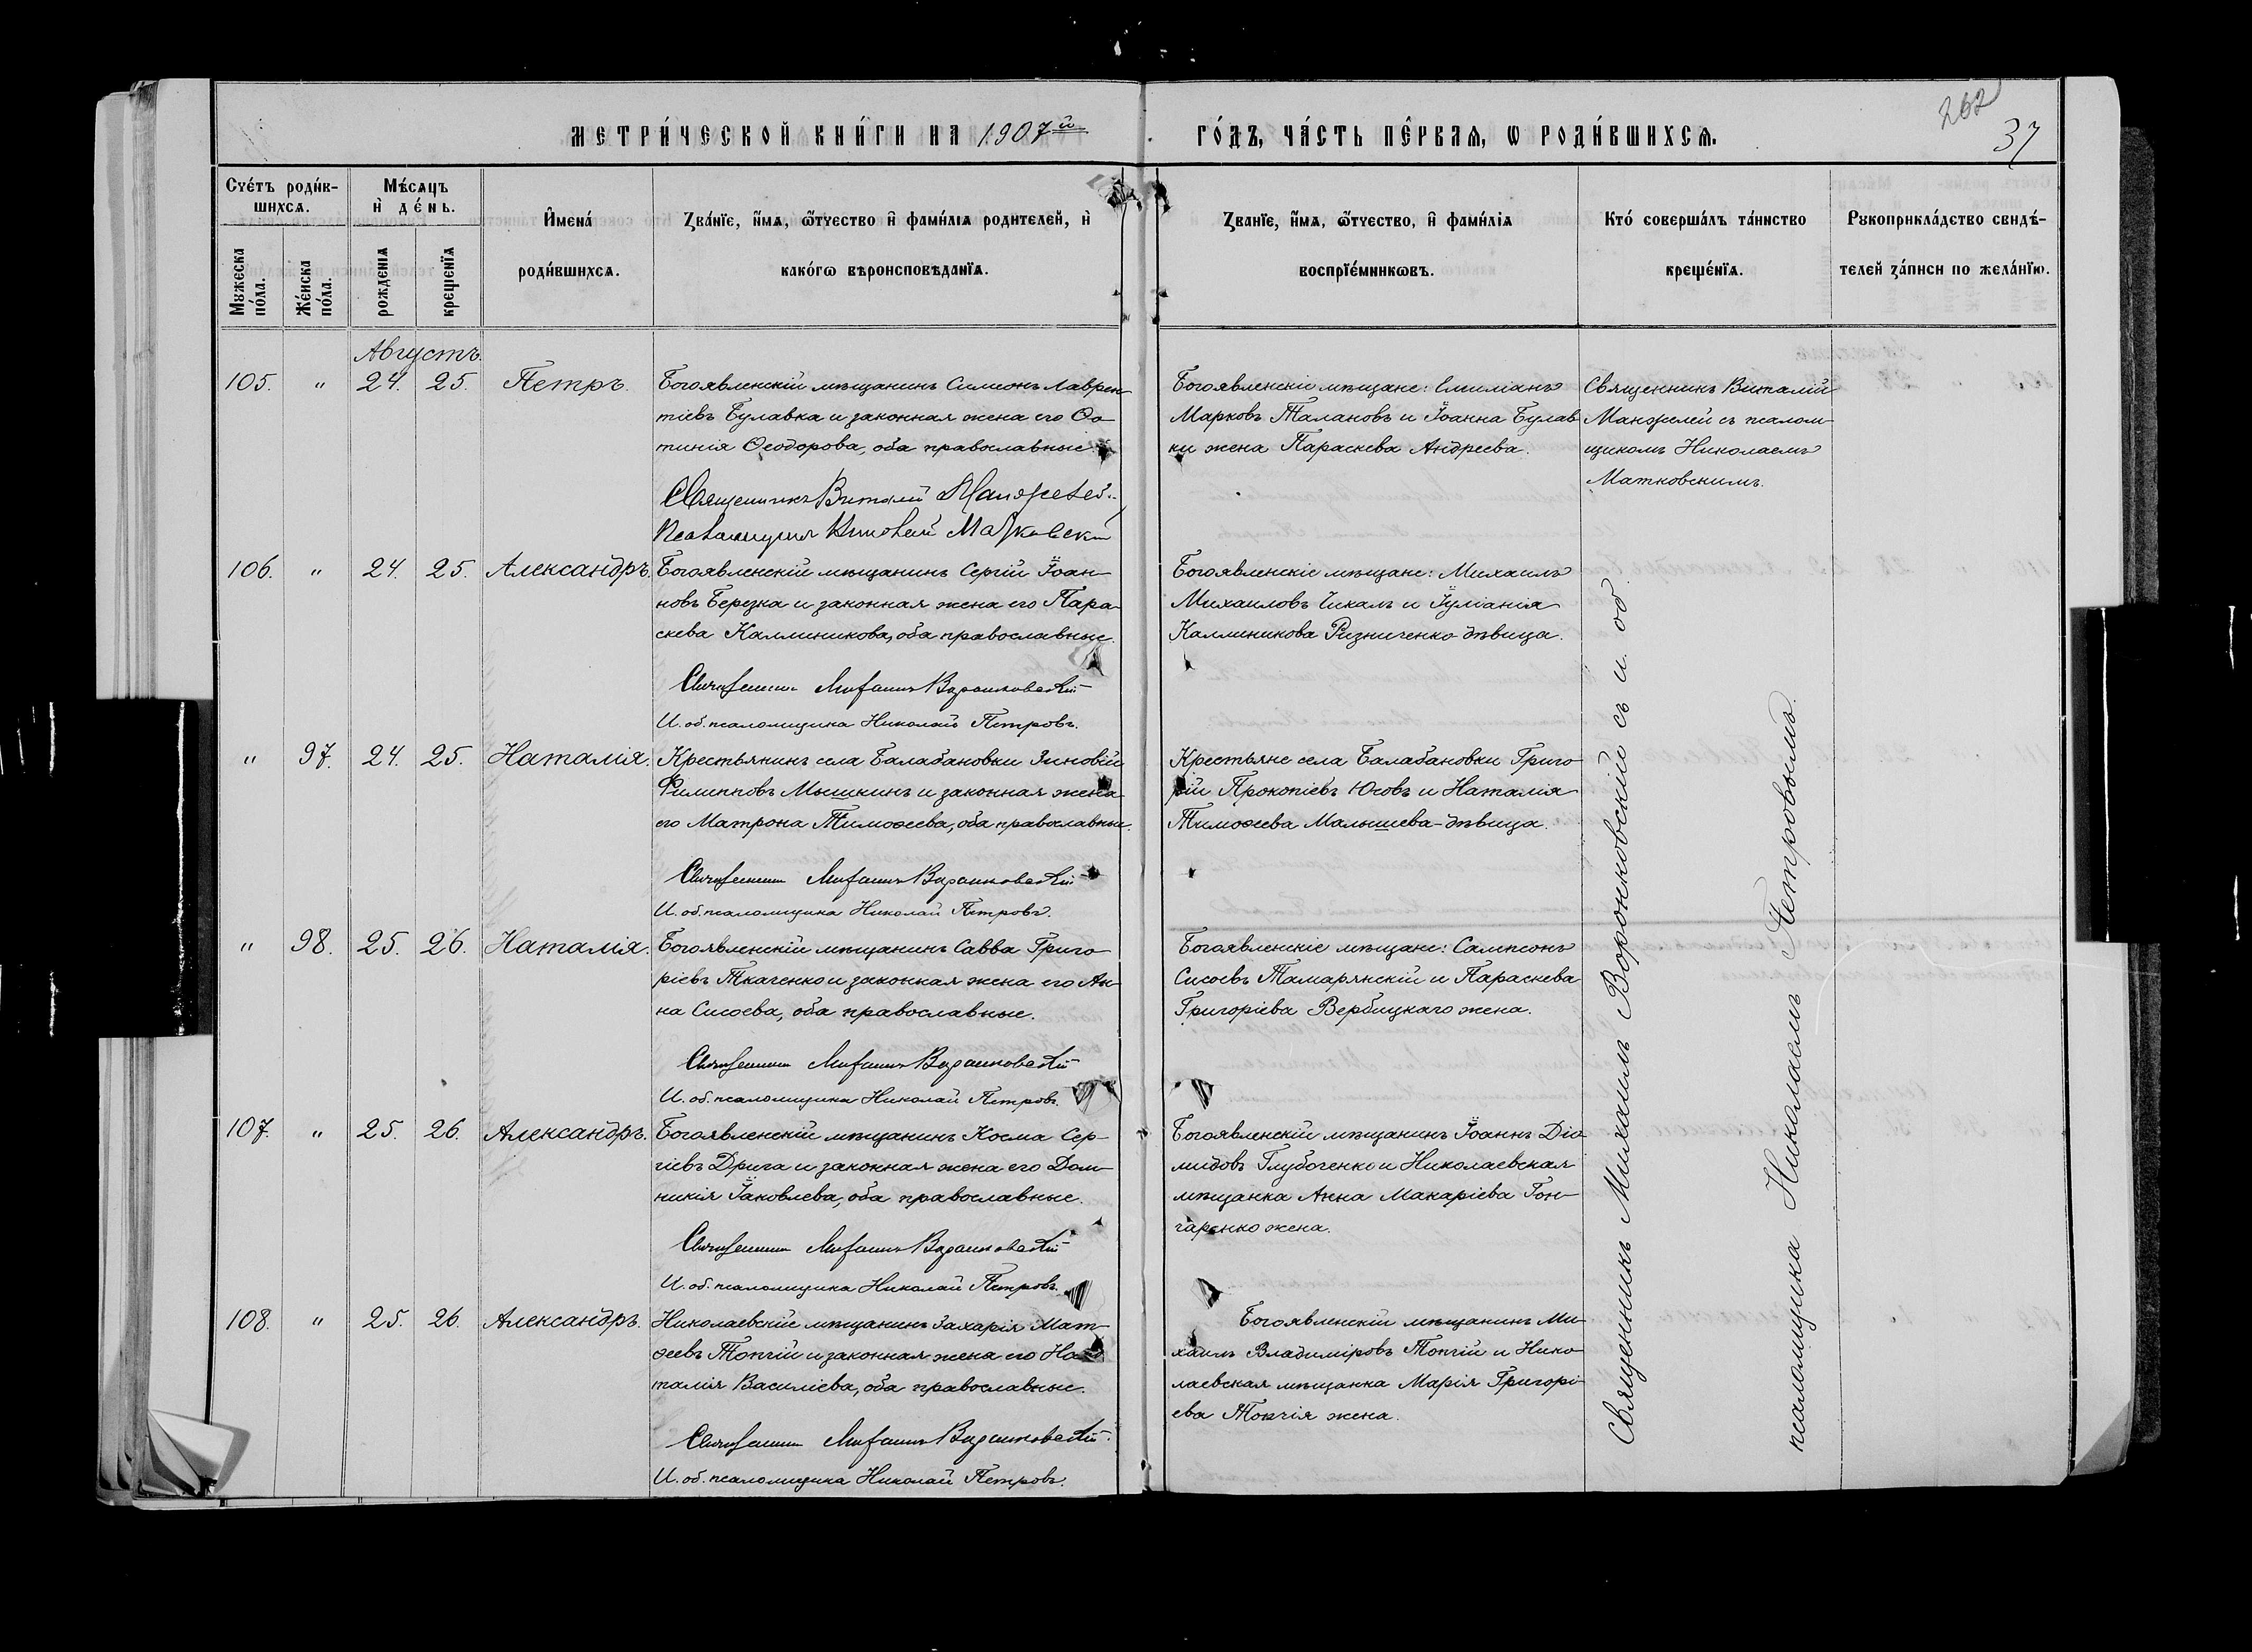 МЕТРИ́ЧЕСКОЙ КНИ́ГИ НА 1907й
ГО́ДЪ, ЧА́СТЬ ПЕ́РВАЯ, Ѡ РОДИ́ВШИХСѦ.
262
37
Счéтъ роди́в-
шихсѧ.
Мѣ́сѧцъ
и҆ дéнь.
И҆мена́
роди́вшихсѧ.
Зва́нїе, и҆́мѧ, ѻ҆́тчество и҆ фами́лїа родителей, и҆
како́гѡ вѣроисповѣданїѧ.
Званїе, и҆́мѧ, ѻ҆́тчество, и҆ фами́лїа
воспрїе́мникѡвъ.
Кто́ соверша́лъ та́инство
креще́нїѧ.
Рꙋкоприкла́дство свидѣ́-
телей за́писи по жела́нїю.
Мꙋжеска
по́ла.
Же́нска
по́ла.
рожденїѧ
крещенїѧ
Августъ.
105. " 24. 25. Петръ.
Богоявленскій мѣщанинъ Симеонъ Лаврен-
тіевъ Булавка и законная жена его Ѳо-
тинія Ѳеодорова, оба православные.
Священникъ Виталій Манжелей.
Псаломщикъ Николай Матковскій
Богоявленскіе мѣщане: Емиліанъ
Марковъ Талановъ и Іоанна Булав
ки жена Параскева Андреева.
Священникъ Виталій
Манжелей съ псалом-
щикомъ Николаемъ
Матковскимъ.
106. " 24. 25. Александръ.
Богоявленскій мѣщанинъ Сергій Іоан-
новъ Березка и законная жена его Пара-
скева Каллиникова, оба православные.
Священникъ Михаилъ Воронковскій
И. об. псаломщика Николай Петровъ.
Богоявленскіе мѣщане: Михаилъ
Михаиловъ Чикалъ и Іуліанія
Каллиникова Ризниченко-дѣвица.
" 97. 24. 25. Наталія.
Крестьянинъ села Балабановки Зиновій
Филипповъ Мышкинъ и законная жена
его Матрона Тимоѳеева, оба православные.
Священникъ Михаилъ Воронковскій
И. об. псаломщика Николай Петровъ.
Крестьяне села Балабановки Григо-
рій Прокопіевъ Юсовъ и Наталія
Тимоѳеева Малышева-дѣвица.
" 98. 25. 26. Наталія.
Богоявленскій мѣщанинъ Савва Григо-
ріевъ Ткаченко и законная жена его Ан-
на Сисоева, оба православные.
Священникъ Михаилъ Воронковскій
И. об. псаломщика Николай Петровъ.
Богоявленскіе мѣщане: Сампсонъ
Сисоевъ Тамарянскій и Параскева
Григоріева Вербицкаго жена.
107. " 25. 26. Александръ.
Богоявленскій мѣщанинъ Косма Сер-
гіевъ Дрига и законная жена его Дом-
никія Іаковлева, оба православные.
Священникъ Михаилъ Воронковскій
И. об. псаломщика Николай Петровъ.
Богоявленскій мѣщанинъ Іоаннъ Діо-
мидовъ Глубоченко и Николаевская
мѣщанка Анна Макаріева Гон-
чаренко жена.
108. " 25. 26. Александръ.
Николаевскій мѣщанинъ Захарія Мат-
ѳеевъ Топчій и законная жена его На-
талія Василіева, оба православные.
Священникъ Михаилъ Воронковскій.
И. об. псаломщика Николай Петровъ.
Богоявленскій мѣщанинъ Ми-
хаилъ Владиміровъ Топчій и Нико-
лаевская мѣщанка Марія Григорі-
ева Топчія жена.
Священникъ Михаилъ Воронковскій съ и. об.
псаломщика Николаемъ Петровымъ.